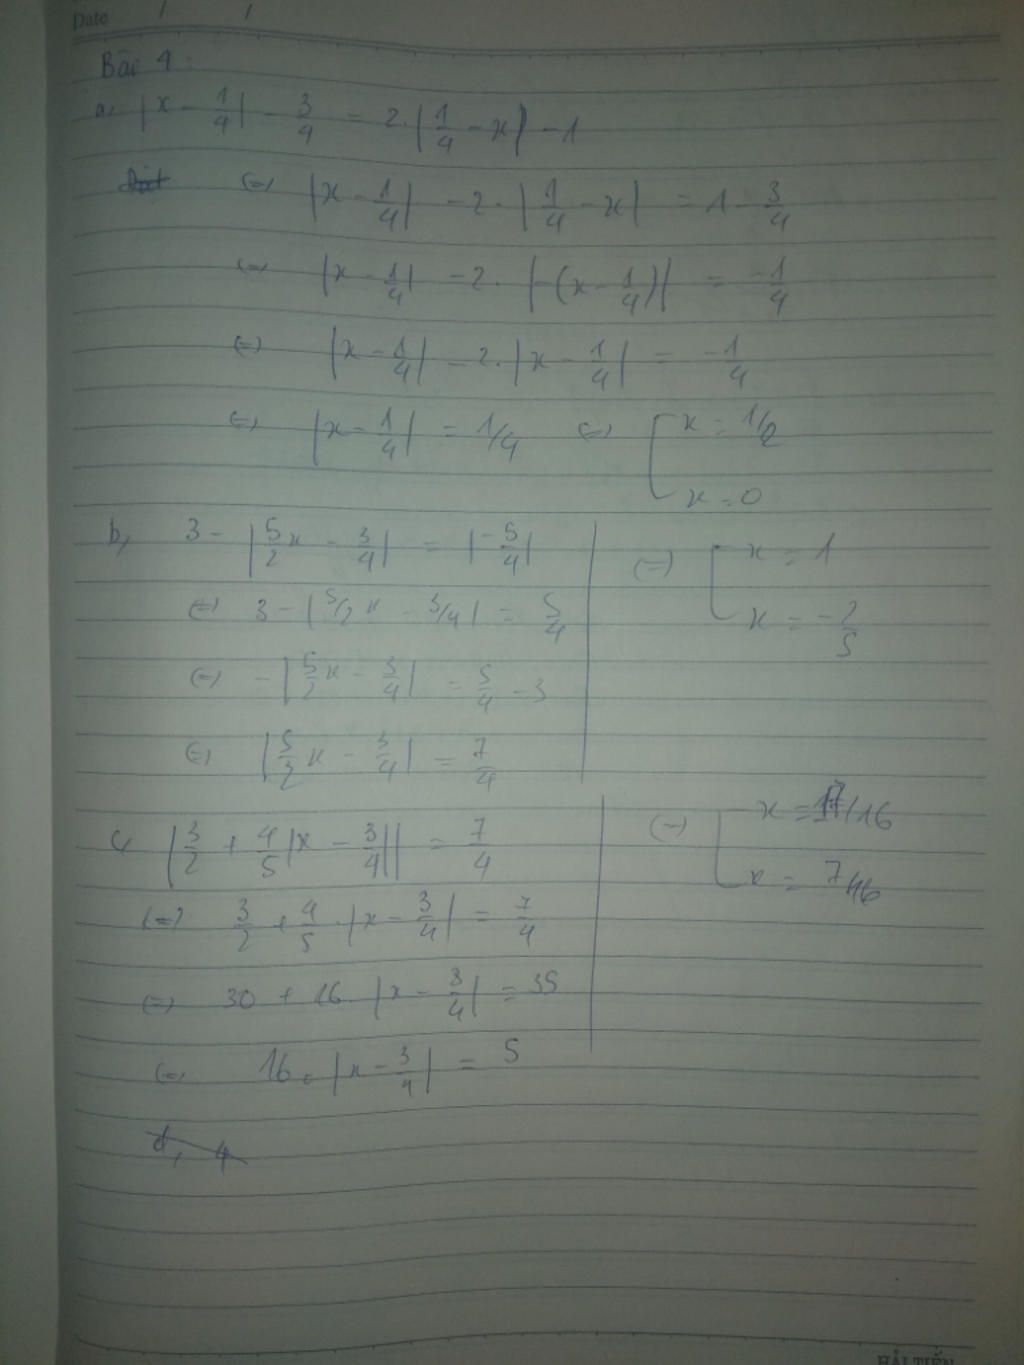 Date / /
Bài 4:
a, |x - 1/4| - 3/4 = 2.|1/4 - x| - 1
(=) |x - 1/4| - 2.|1/4 - x| = 1 - 3/4
(=) |x - 1/4| - 2.|-(x - 1/4)| = -1/4
(=) |x - 1/4| - 2.|x - 1/4| = -1/4
(=) |x - 1/4| = 1/4 (=) [ x = 1/2
x = 0
b, 3 - |5/2 x - 3/4| = |-5/4|
(=) 3 - |5/2 x - 3/4| = 5/4
(=) -|5/2 x - 3/4| = 5/4 - 3
(=) |5/2 x - 3/4| = 7/4
(=) [ x = 1
x = -2/5
c, |3/2 + 4/5|x - 3/4|| = 7/4
(=) 3/2 + 4/5.|x - 3/4| = 7/4
(=) 30 + 16.|x - 3/4| = 35
(=) 16.|x - 3/4| = 5
(=) [ x = 17/16
x = 7/16
d, 4
HẢI TIẾN